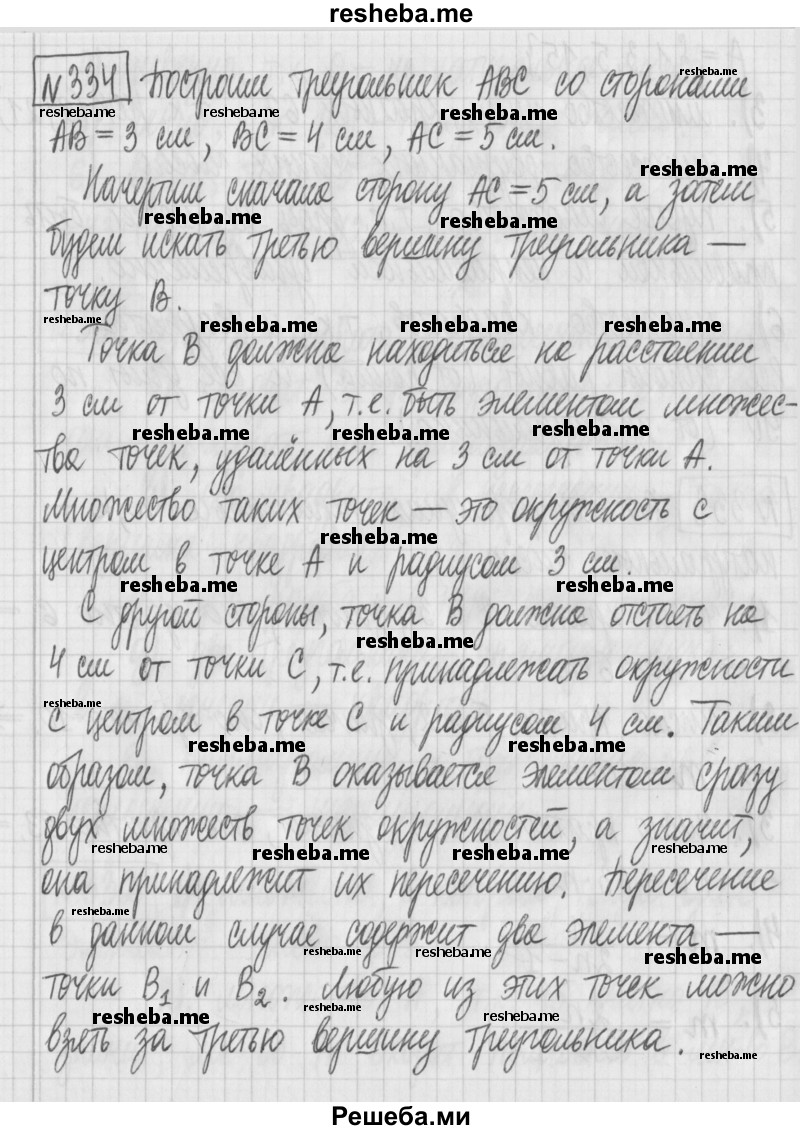 resheba.me
№334 Построим треугольник ABC со сторонами
AB = 3 см, BC = 4 см, AC = 5 см.
Начертим сначала сторону AC = 5 см, а затем
будем искать третью вершину треугольника —
точку B.
Точка B должна находиться на расстоянии
3 см от точки A, т.е. быть элементом множес-
тва точек, удалённых на 3 см от точки A.
Множество таких точек — это окружность с
центром в точке A и радиусом 3 см.
С другой стороны, точка B должна отстоять на
4 см от точки C, т.е. принадлежать окружности
с центром в точке C и радиусом 4 см. Таким
образом, точка B оказывается элементом сразу
двух множеств точек окружностей, а значит,
она принадлежит их пересечению. Пересечение
в данном случае содержит два элемента —
точки B₁ и B₂. Любую из этих точек можно
взять за третью вершину треугольника.
Решеба.ми